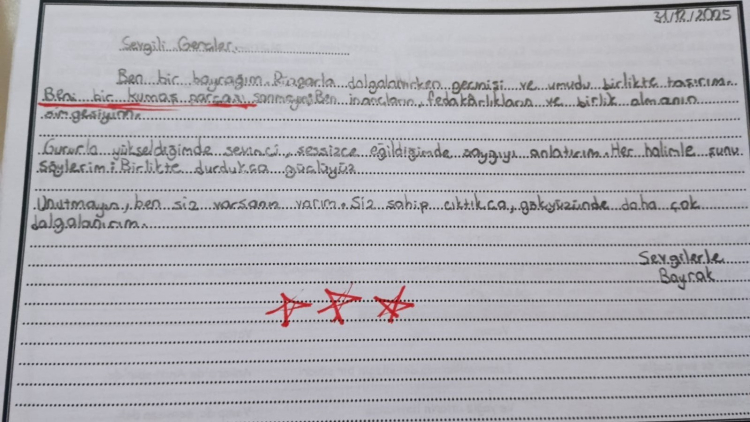 31/12/2025
Sevgili Gençler,
Ben bir bayrağım. Rüzgarla dalgalanırken geçmişi ve umudu birlikte taşırım.
Beni bir kumaş parçası sanmayın. Ben inançların, fedakârlıkların ve birlik olmanın
simgesiyim.
Gururla yükseldiğimde sevinci, sessizce eğildiğimde saygıyı anlatırım. Her halimle şunu
söylerim: Birlikte durdukça güçlüyüz
Unutmayın, ben siz varsanız varım. Siz sahip çıktıkça, gökyüzünde daha çok
dalgalanırım.
Sevgilerle
Bayrak